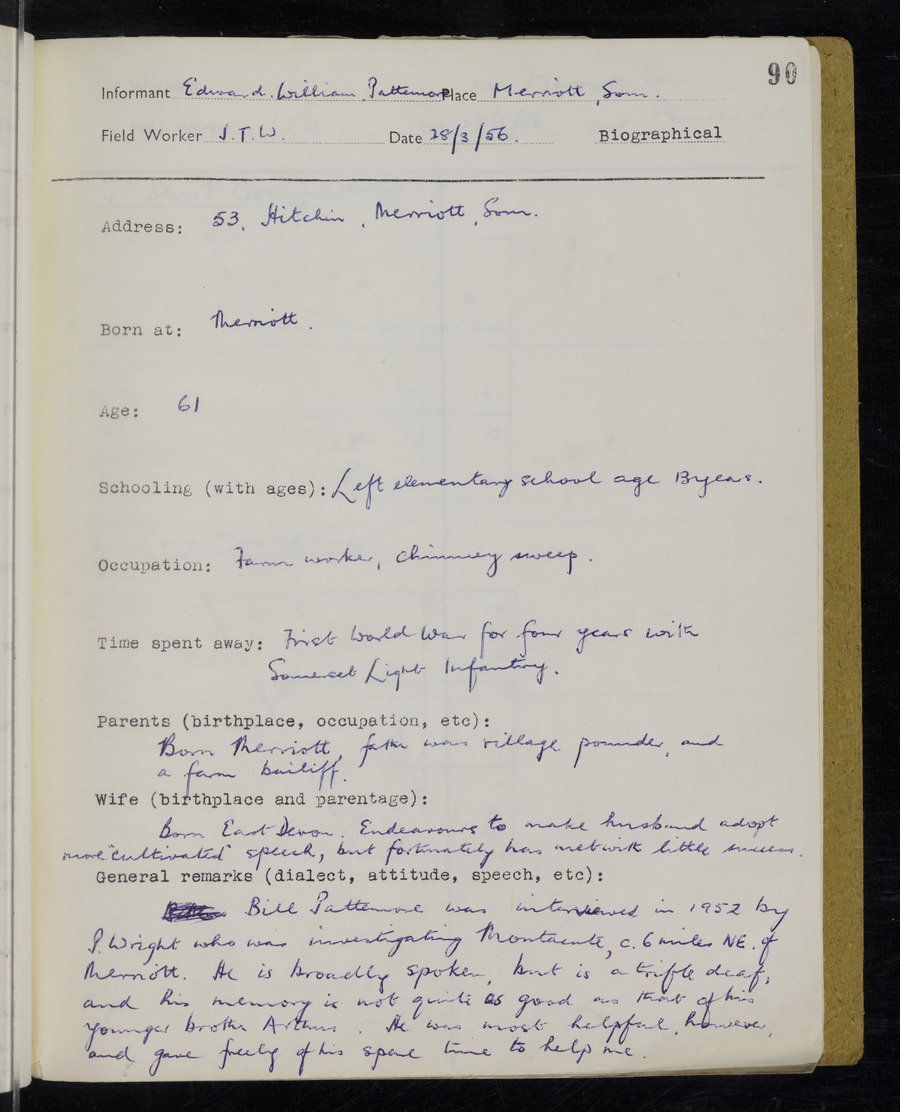 90
Informant Edward William Pattemore Place Merriott, Som.
Field Worker J.T.W. Date 28/3/56. Biographical
Address: 53, Hitchin, Merriott, Som.
Born at: Merriott.
Age: 61
Schooling (with ages): Left elementary school age 13 years.
Occupation: Farm worker, chimney sweep.
Time spent away: First World War for four years with
Somerset Light Infantry.
Parents (birthplace, occupation, etc):
Born Merriott, father was village pounder, and
a farm bailiff.
Wife (birthplace and parentage):
Born East Devon. Endeavours to make husband adopt
more "cultivated" speech, but fortunately has met with little success.
General remarks (dialect, attitude, speech, etc):
Bill Pattemore was interviewed in 1952 by
P. Wright who was investigating Montacute, c. 6 miles NE. of
Merriott. He is broadly spoken, but is a trifle deaf,
and his memory is not quite as good as that of his
younger brother Arthur. He was most helpful, however,
and gave freely of his spare time to help me.